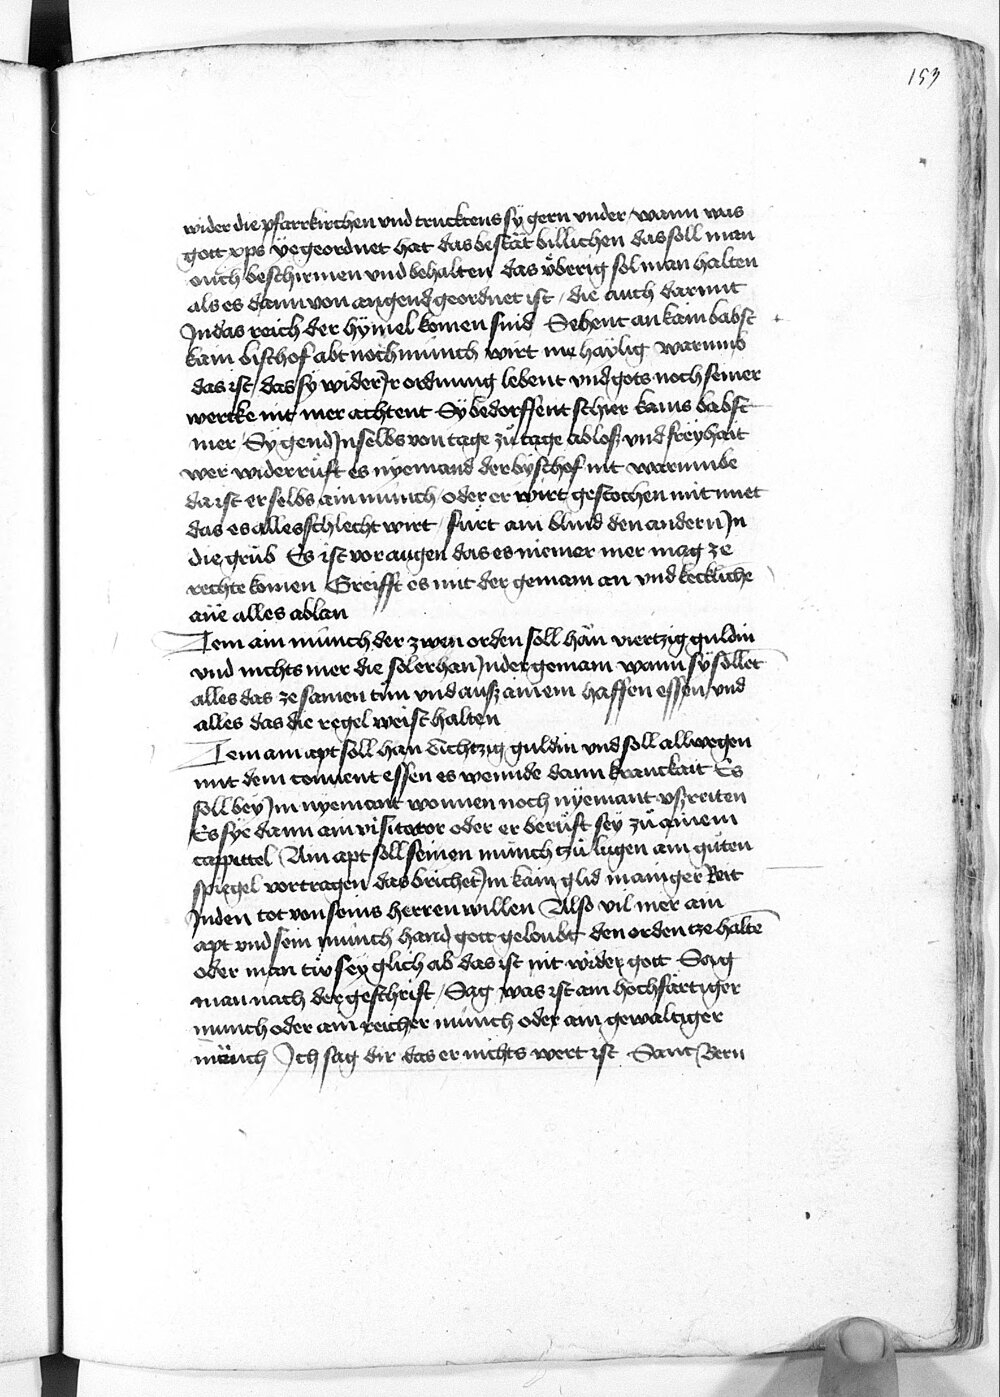 153
wider die pfarrkirchen vnd truckens sy gern vnder / wann was
gott xps ye geordnet hat das bestät billichen das soll man
ouch beschirmen vnd behalten das v̊berig sol man halten
als es dann von angend geordnet ist / die auch darmit
Jn das reich der hymel komen sind Sehent an kain babst
kain bischof abt noch münch wirt me haylig warumb
das ist / das sy wider Jr ordnung lebent vnd gots noch seiner
wercke nit mer achtent Sy bedorffent schier kains babst
mer Sy gend Jn selbs von tage zů tage abloß vnd freyhait
wer widerrůft es nyemand der byschof nit warumbe
da ist er selbs ain münch / oder er wirt gestochen mit miet
das es alles schlecht wirt / fürt ain blind den andern Jn
die grůb Es ist vor augen das es niemer mer mag ze
rechte komen Greifft es mit der gemain an vnd keckliche
ane alles ablan
Jtem ain münch der zwen orden soll hän viertzig guldin
vnd nichts mer die sol er han Jn der gemain wann sy sollet
alles das ze samen tůn vnd auß ainem haffen essen / vnd
alles das die regel weist halten
Jtem ain apt soll han Achtzig guldin vnd soll allwegen
mit dem conuent essen es wennde dann kranckait Es
soll bey Jm nyemant wonnen noch nyemant vßreiten
Es sye dann ain visitator oder er berůft sey zů ainem
cappittel Ain apt soll seinen münch zů lugen ain gůten
spiegel vortragen das brichet Jm kain glid mainiger Reit
Jn den tot von seins herren willen Alß vil mer ain
apt vnd sein münch hand gott geloubt den orden tze halten
oder man tův sey glich ab das ist nit wider gott Sag
man nach der geschrift / Sag was ist ain hochfärtiger
münch oder ain reicher münch oder ain gewaltiger
münch Jch sag dir das er nichts wert ist Sant Bern